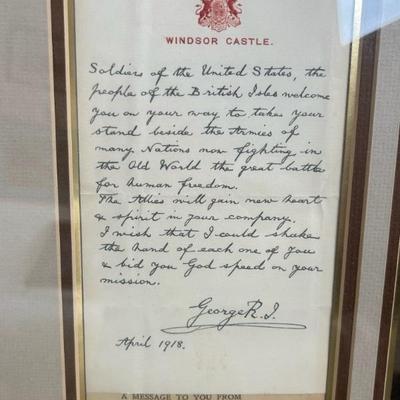 WINDSOR CASTLE.
Soldiers of the United States, the
people of the British Isles welcome
you on your way to take your
stand beside the Armies of
many Nations now fighting in
the Old World the great battle
for human freedom.
The Allies will gain new heart
& spirit in your company.
I wish that I could shake
the hand of each one of you
& bid you God speed on your
mission.
George R.I.
April 1918.
A MESSAGE TO YOU FROM